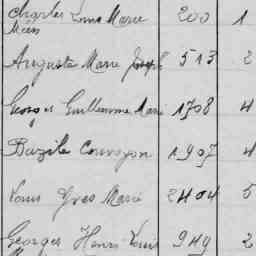 Charles Louis Marie 200 1
Auguste Marie Joseph 513 2
Georges Guillaume Marie 1708 4
Bazile 1907 4
Louis Yves Marie 2404 5
Georges Henri Louis 949 2